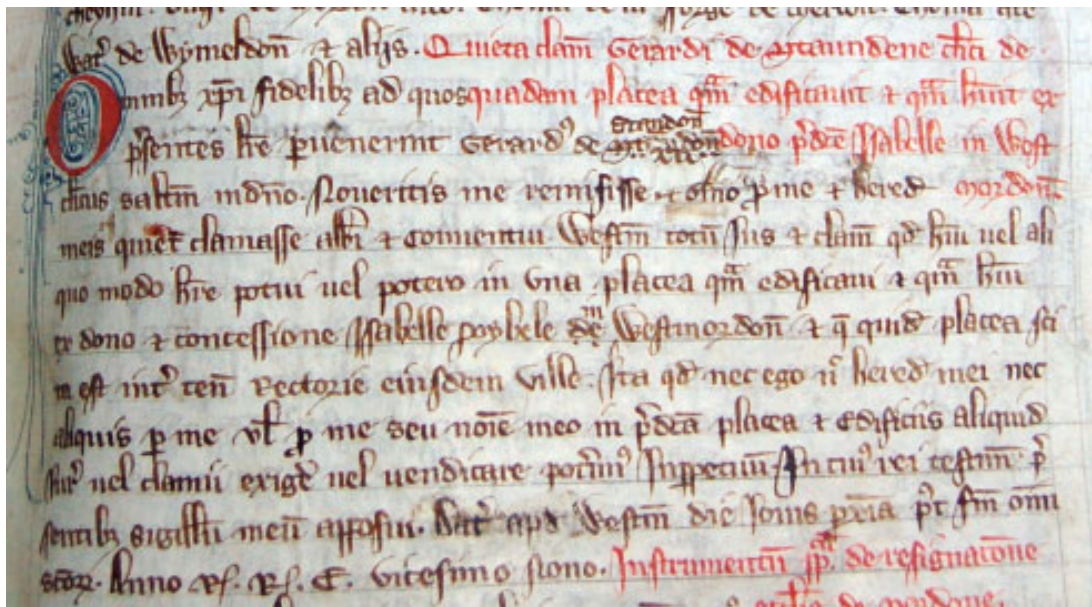 Walt de Wymeldon & alijs. Quieta clam Gerardi de Staundene clici de
Omnibz xpi fidelibz ad quos quadam placea qm edificauit & qm huit ex
psentes lre puenerint Gerard' de Staundon dono pdce Issabelle in West
clicus saltm in dno. Noueritis me remisisse & oino p me & hered mordon
meis quiet clamasse abbi & Conuentui Westm totu Jus & clam qd hui uel ali
quo modo hre potui uel potero in Una placea qm edificaui & qm hui
ex dono & concessione Issabelle de Westmordon & q quid placea sci
ta est int' ten Rectorie eiusdem Ville. Ita qd nec ego n' hered mei nec
aliquis p me ul' p me seu noie meo in pdca placea & Edificiis aliquid
Jur' uel clamii exige uel uendicare pot'im' Inppetuu. In cui' rei testim p
sentibz sigillu meu apposui. Dat' apd Westm die Jouis pxia p't fm oim
scor. Anno R. R. E. vicesimo nono. Instrumentu de resignatone